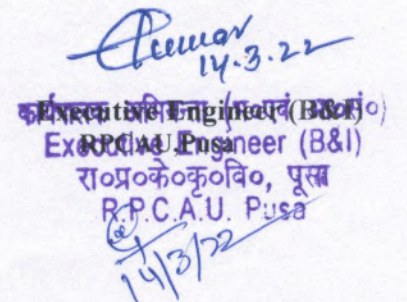 Kumar
14.3.22
Executive Engineer (B&I)
RPCAU, Pusa
कार्यपालक अभियन्ता (भ०एवं अ०सं०)
Executive Engineer (B&I)
रा०प्र०के०कृ०वि०, पूसा
R.P.C.A.U. Pusa
14/3/22